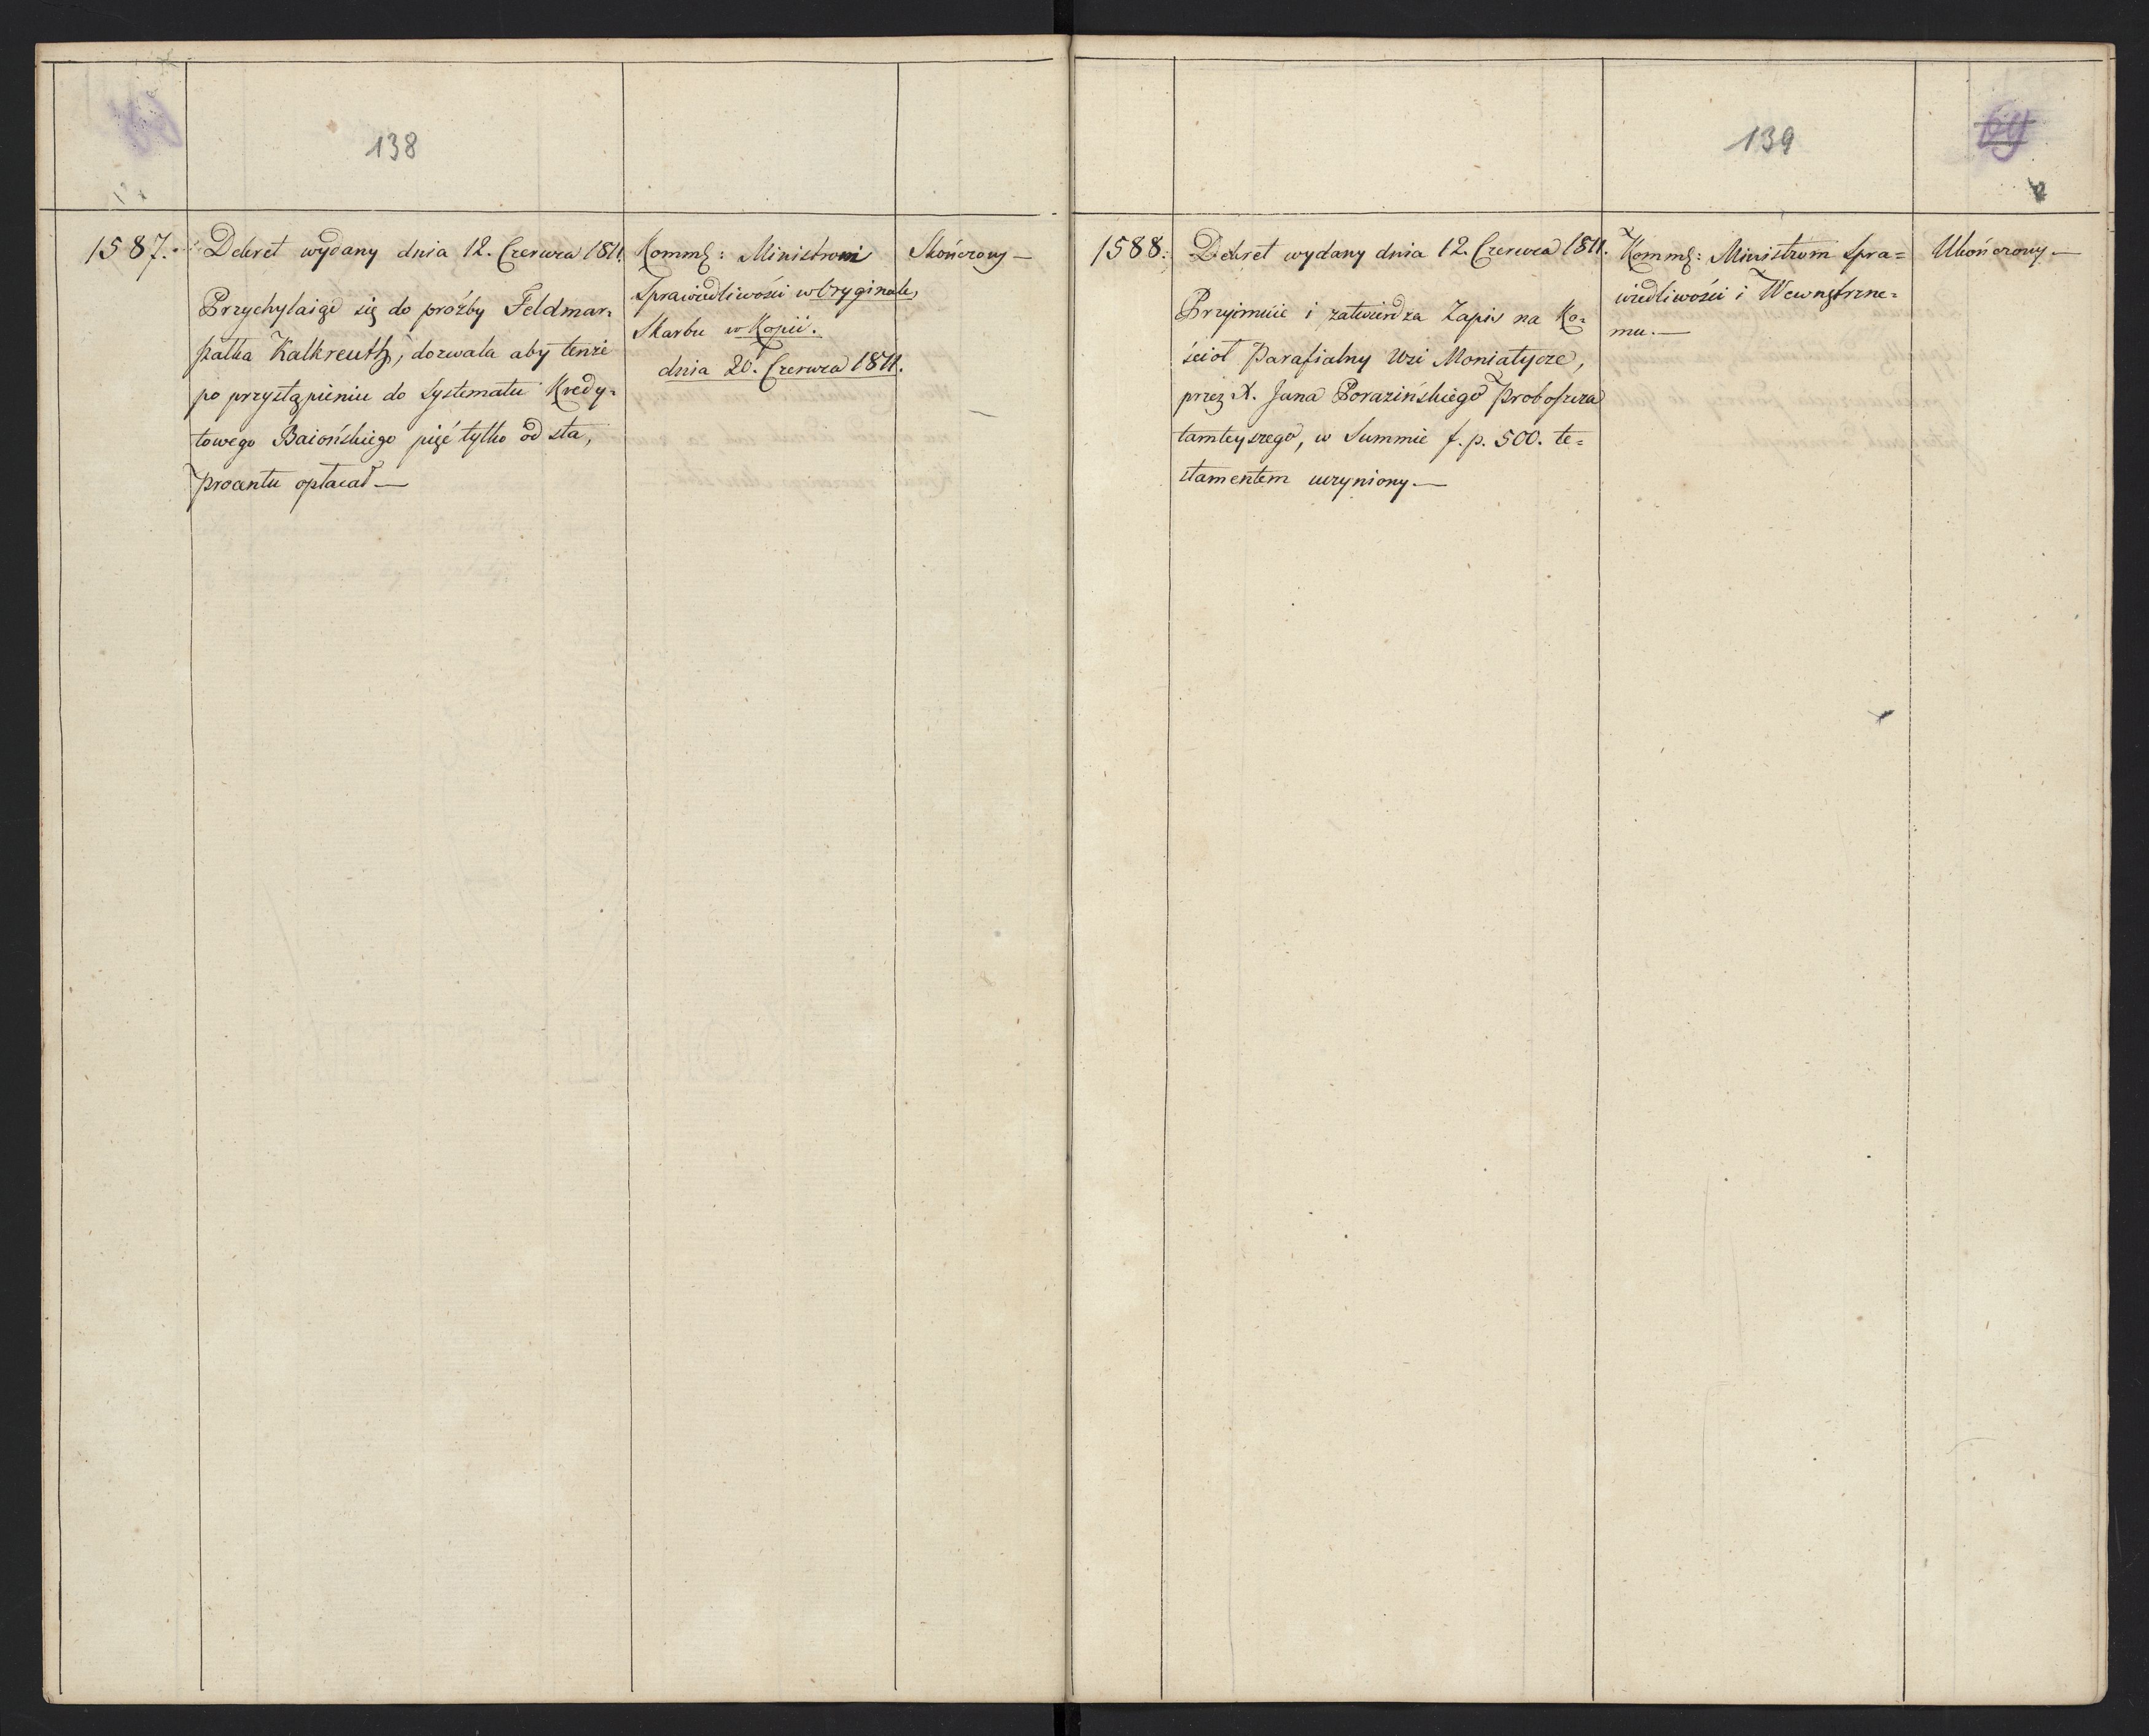 138
1587.
Dekret wydany dnia 12. Czerwca 1811.
Przychylaiąc się do proźby Feldmar=
szałka Kalkreuth, dozwala aby tenże
po przystąpieniu do Systematu Kredy=
towego Baiońskiego pięć tylko od sta,
procentu opłacał —
Komm: Ministrowi
Sprawiedliwości w Oryginale,
Skarbu w Kopii.
dnia 20. Czerwca 1811.
Skończony —
139
69
1588.
Dekret wydany dnia 12. Czerwca 1811.
Przyimuie i zatwierdza Zapis na Ko=
ściół Parafialny Wsi Moniatycze,
przez X. Jana Porazińskiego Proboszcza
tamteyszego, w Summie f. p. 500. te=
stamentem uczyniony. —
Komm: Ministrom Spra=
wiedliwości i Wewnętrzne=
mu. —
Ukończony. —